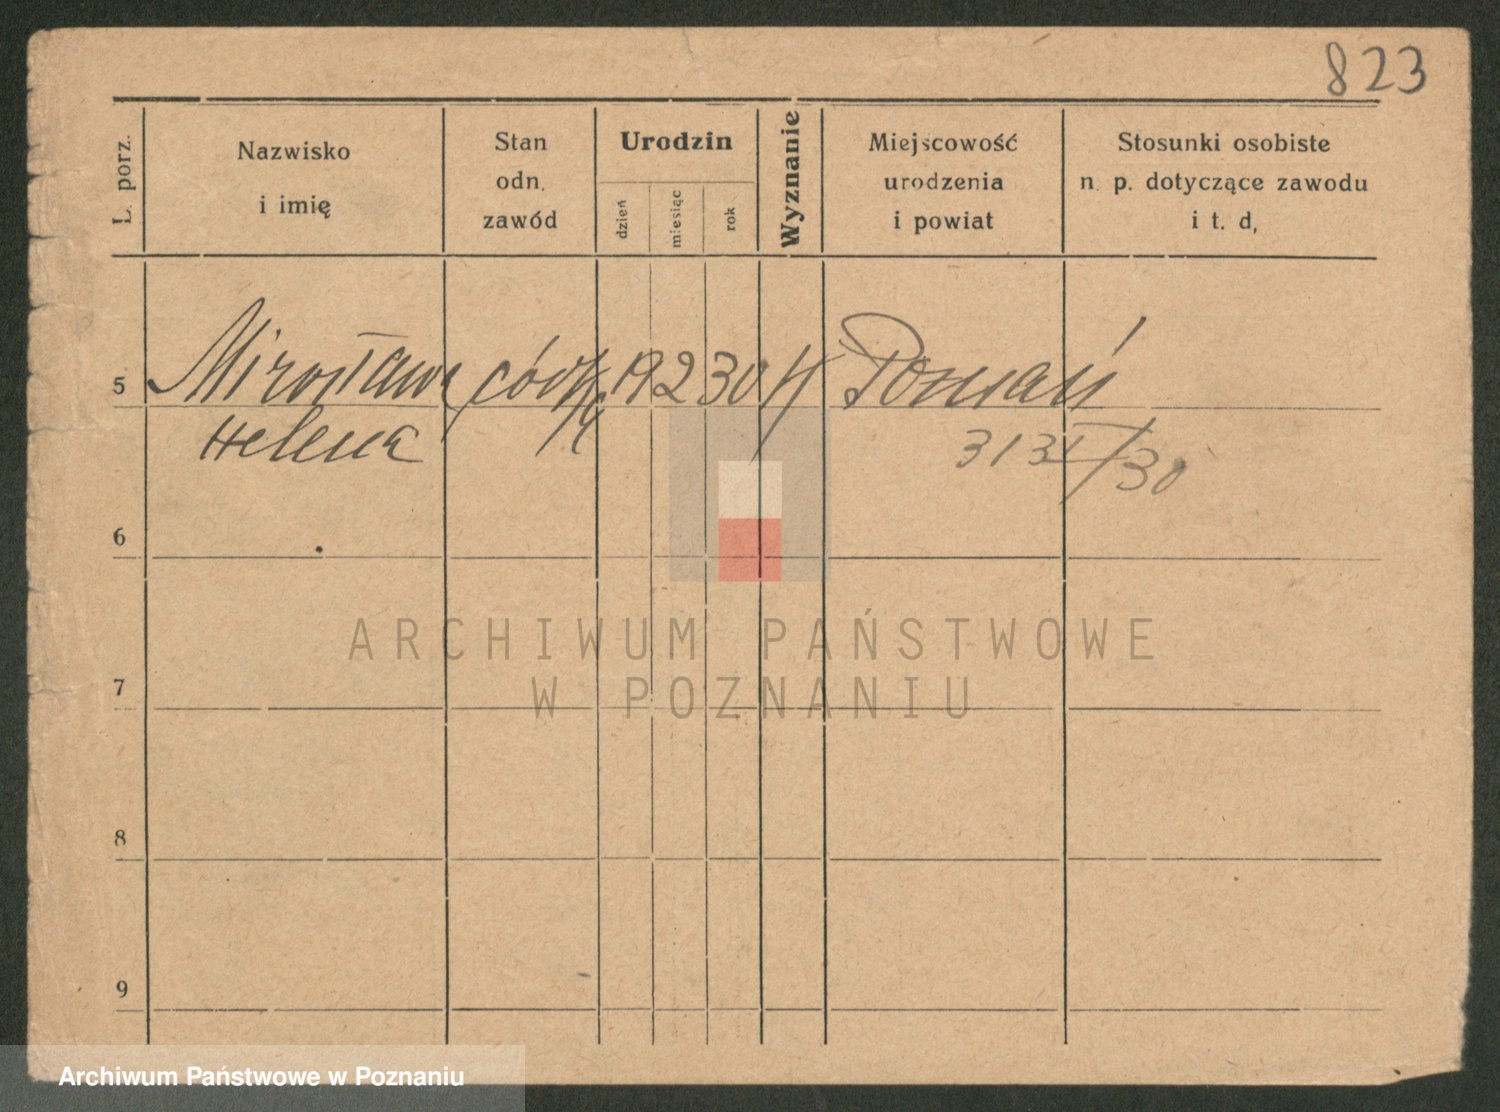 823
L. porz.
Nazwisko
i imię
Stan
odn.
zawód
Urodzin
dzień
miesiąc
rok
Wyznanie
Miejscowość
urodzenia
i powiat
Stosunki osobiste
n. p. dotyczące zawodu
i t. d.
5 Mirosława 19 2 30 Poznań
Helena
6
7
8
9
ARCHIWUM PAŃSTWOWE
W POZNANIU
Archiwum Państwowe w Poznaniu